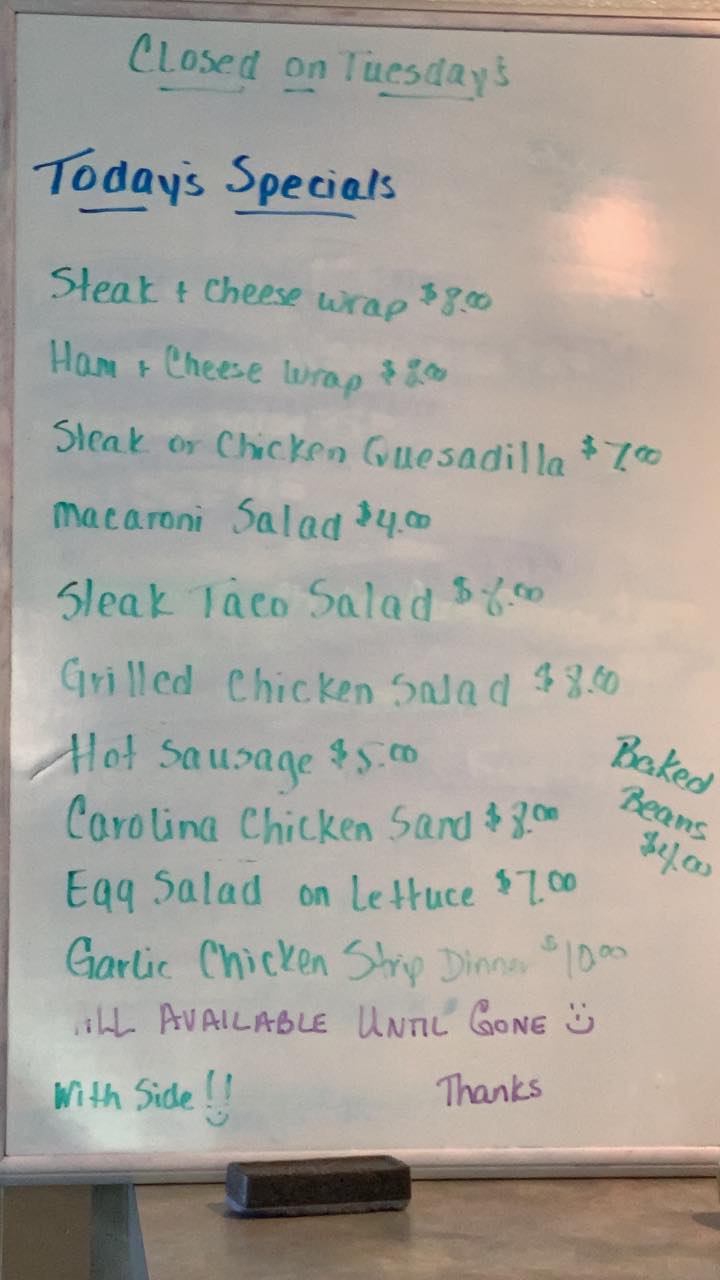 Closed on Tuesday's
Today's Specials
Steak + Cheese Wrap $8.00
Ham + Cheese Wrap $8.00
Steak or Chicken Quesadilla $7.00
Macaroni Salad $4.00
Steak Taco Salad $8.00
Grilled Chicken Salad $8.00
Hot Sausage $5.00
Carolina Chicken Sand $8.00
Egg Salad on Lettuce $7.00
Garlic Chicken Strip Dinner $10.00
Baked
Beans
$4.00
All AVAILABLE UNTIL GONE
With Side!!
Thanks